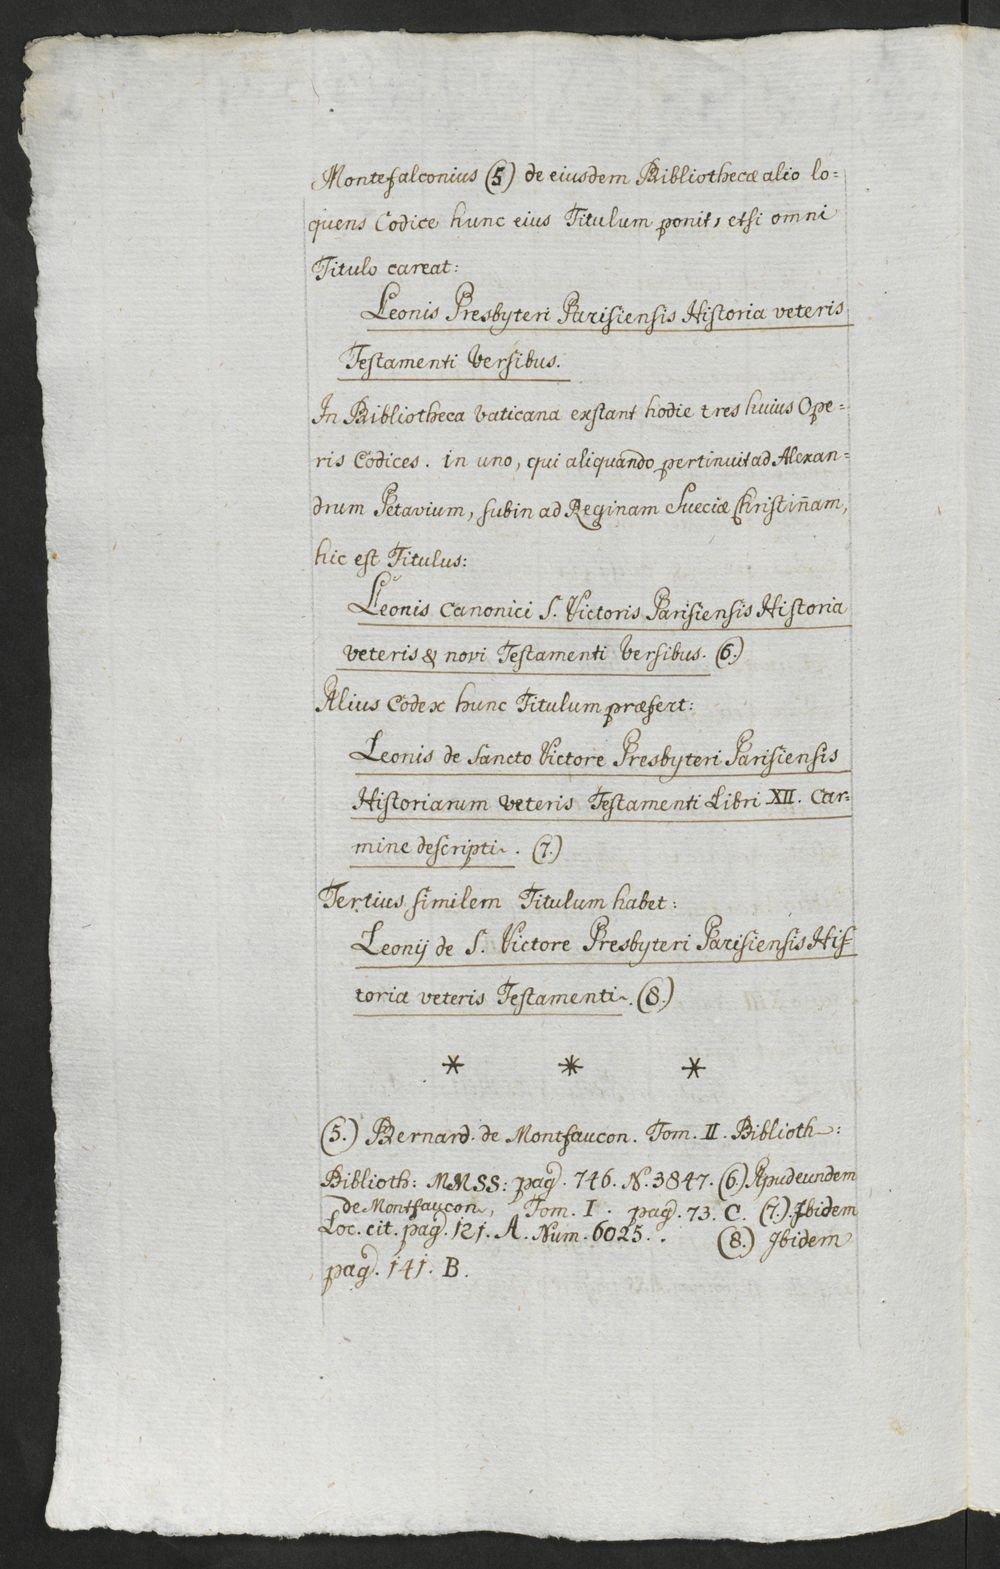 Montefalconius (5) de eiusdem Bibliothecæ alio lo=
quens Codice hunc eius Titulum ponit, etsi omni
Titulo careat:
Leonis Presbyteri Parisiensis Historia veteris
Testamenti Versibus.
In Bibliotheca Vaticana exstant hodie tres huius Ope=
ris Codices. in uno, qui aliquando pertinuit ad Alexan=
drum Petavium, subin ad Reginam Sueciæ Christin̄am,
hic est Titulus:
Leonis Canonici S. Victoris Parisiensis Historia
veteris & novi Testamenti Versibus. (6.)
Alius Codex hunc Titulum præfert:
Leonis de Sancto Victore Presbyteri Parisiensis
Historiarum veteris Testamenti Libri XII. Car=
mine descripti. (7.)
Tertius similem Titulum habet:
Leonij de S. Victore Presbyteri Parisiensis His-
toria veteris Testamenti. (8.)
* * *
(5.) Bernard. de Montfaucon. Tom. II. Biblioth:
Biblioth: MMSS: pag. 746. N. 3847. (6.) Apud eundem
de Montfaucon, Tom. I. pag. 73. C. (7.) Ibidem
Loc. cit. pag. 121. A. Num. 6025. . (8.) Ibidem
pag. 141. B.